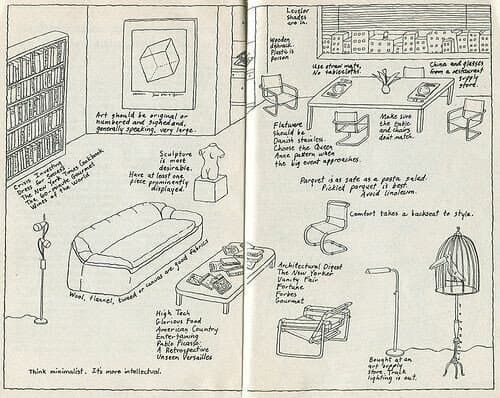 Levelor
shades
are in.
Wooden
dishrack.
Plastic is
poison
Use straw mats,
No tablecloths.
China and glasses
from a restaurant
supply
store.
Art should be original or
numbered and signed and,
generally speaking, very large.
Flatware
should be
Danish stainless.
Choose the Queen
Anne pattern when
the big event approaches.
Make sure
the table
and chairs
don't match.
Crisis Investing
Dress for Success
The New York Times Cookbook
The 60-Minute Gourmet
Wines of the World
Sculpture
is most
desirable.
Have at least one
piece prominently
displayed.
Parquet is as safe as a pasta salad.
Pickled parquet is best.
Avoid linoleum.
Comfort takes a backseat to style.
Wool, flannel, tweed or canvas are good fabrics
Architectural Digest
The New Yorker
Vanity Fair
Fortune
Forbes
Gourmet
High Tech
Glorious Food
American Country
Entertaining
Pablo Picasso:
A Retrospective
Unseen Versailles
Bought at an
art supply
store. Track
lighting is out.
Think minimalist. It's more intellectual.